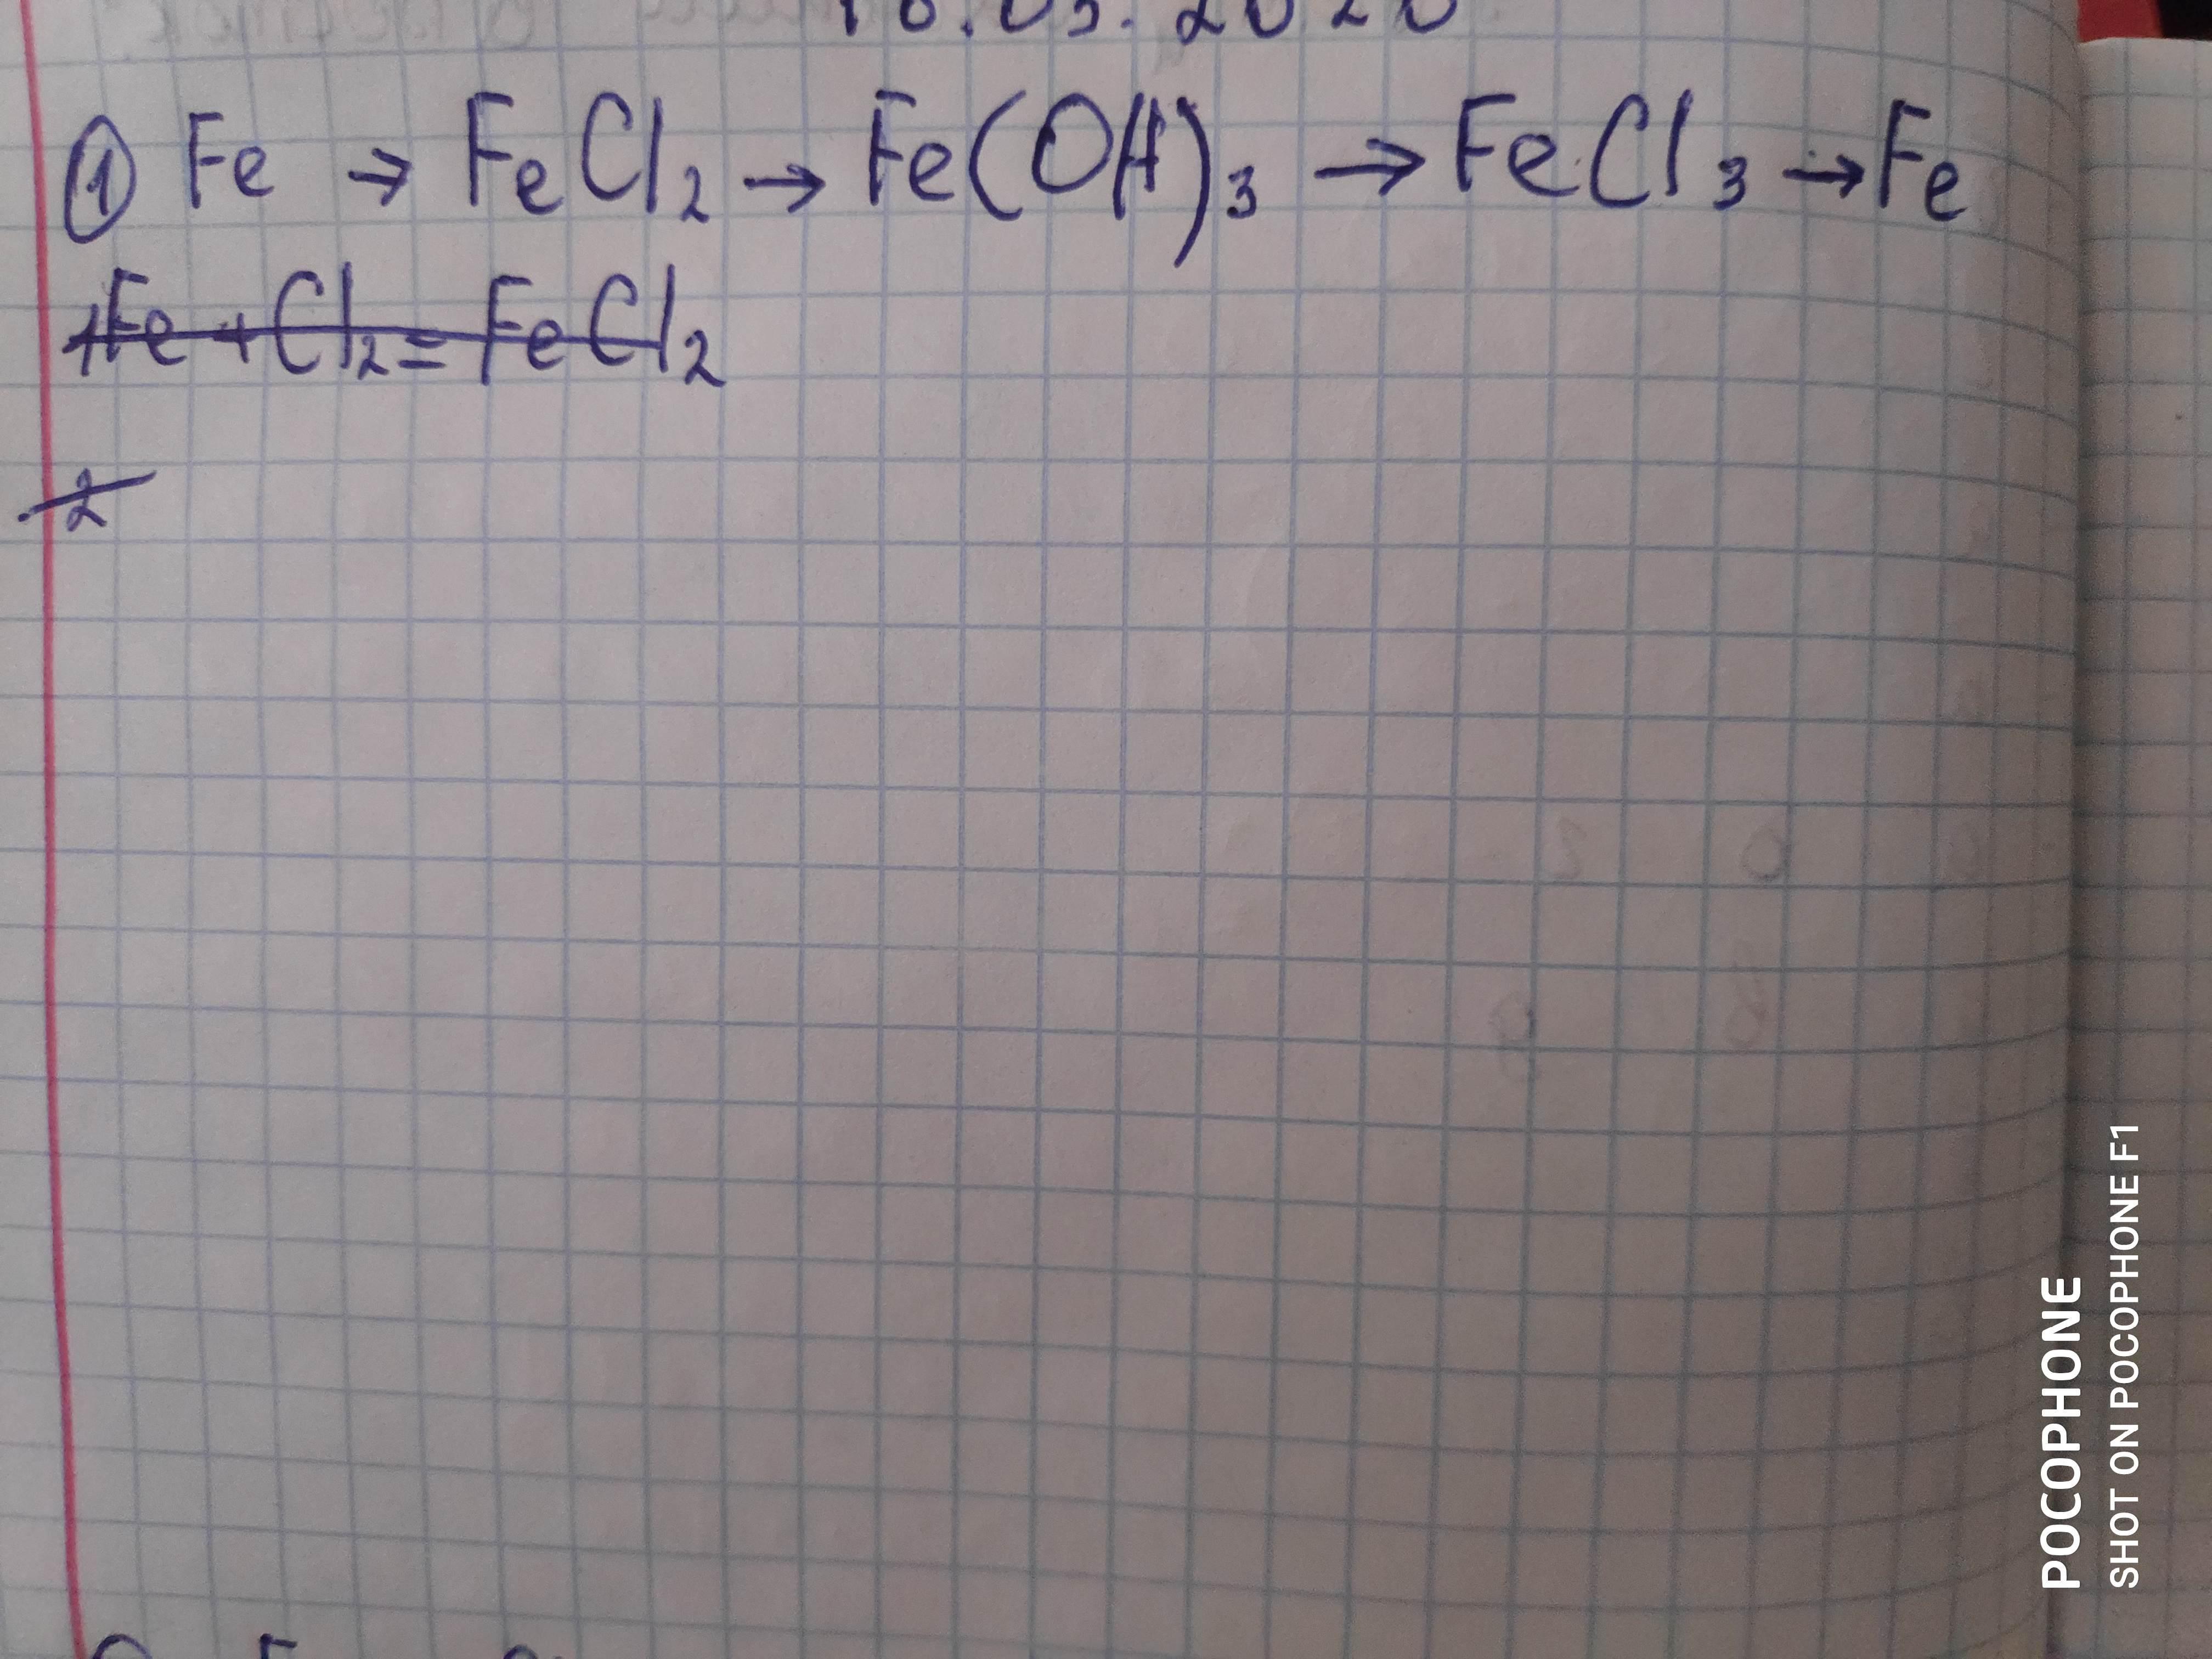 ① Fe → FeCl₂ → Fe(OH)₃ → FeCl₃ → Fe
1Fe + Cl₂ = FeCl₂
2
POCOPHONE
SHOT ON POCOPHONE F1